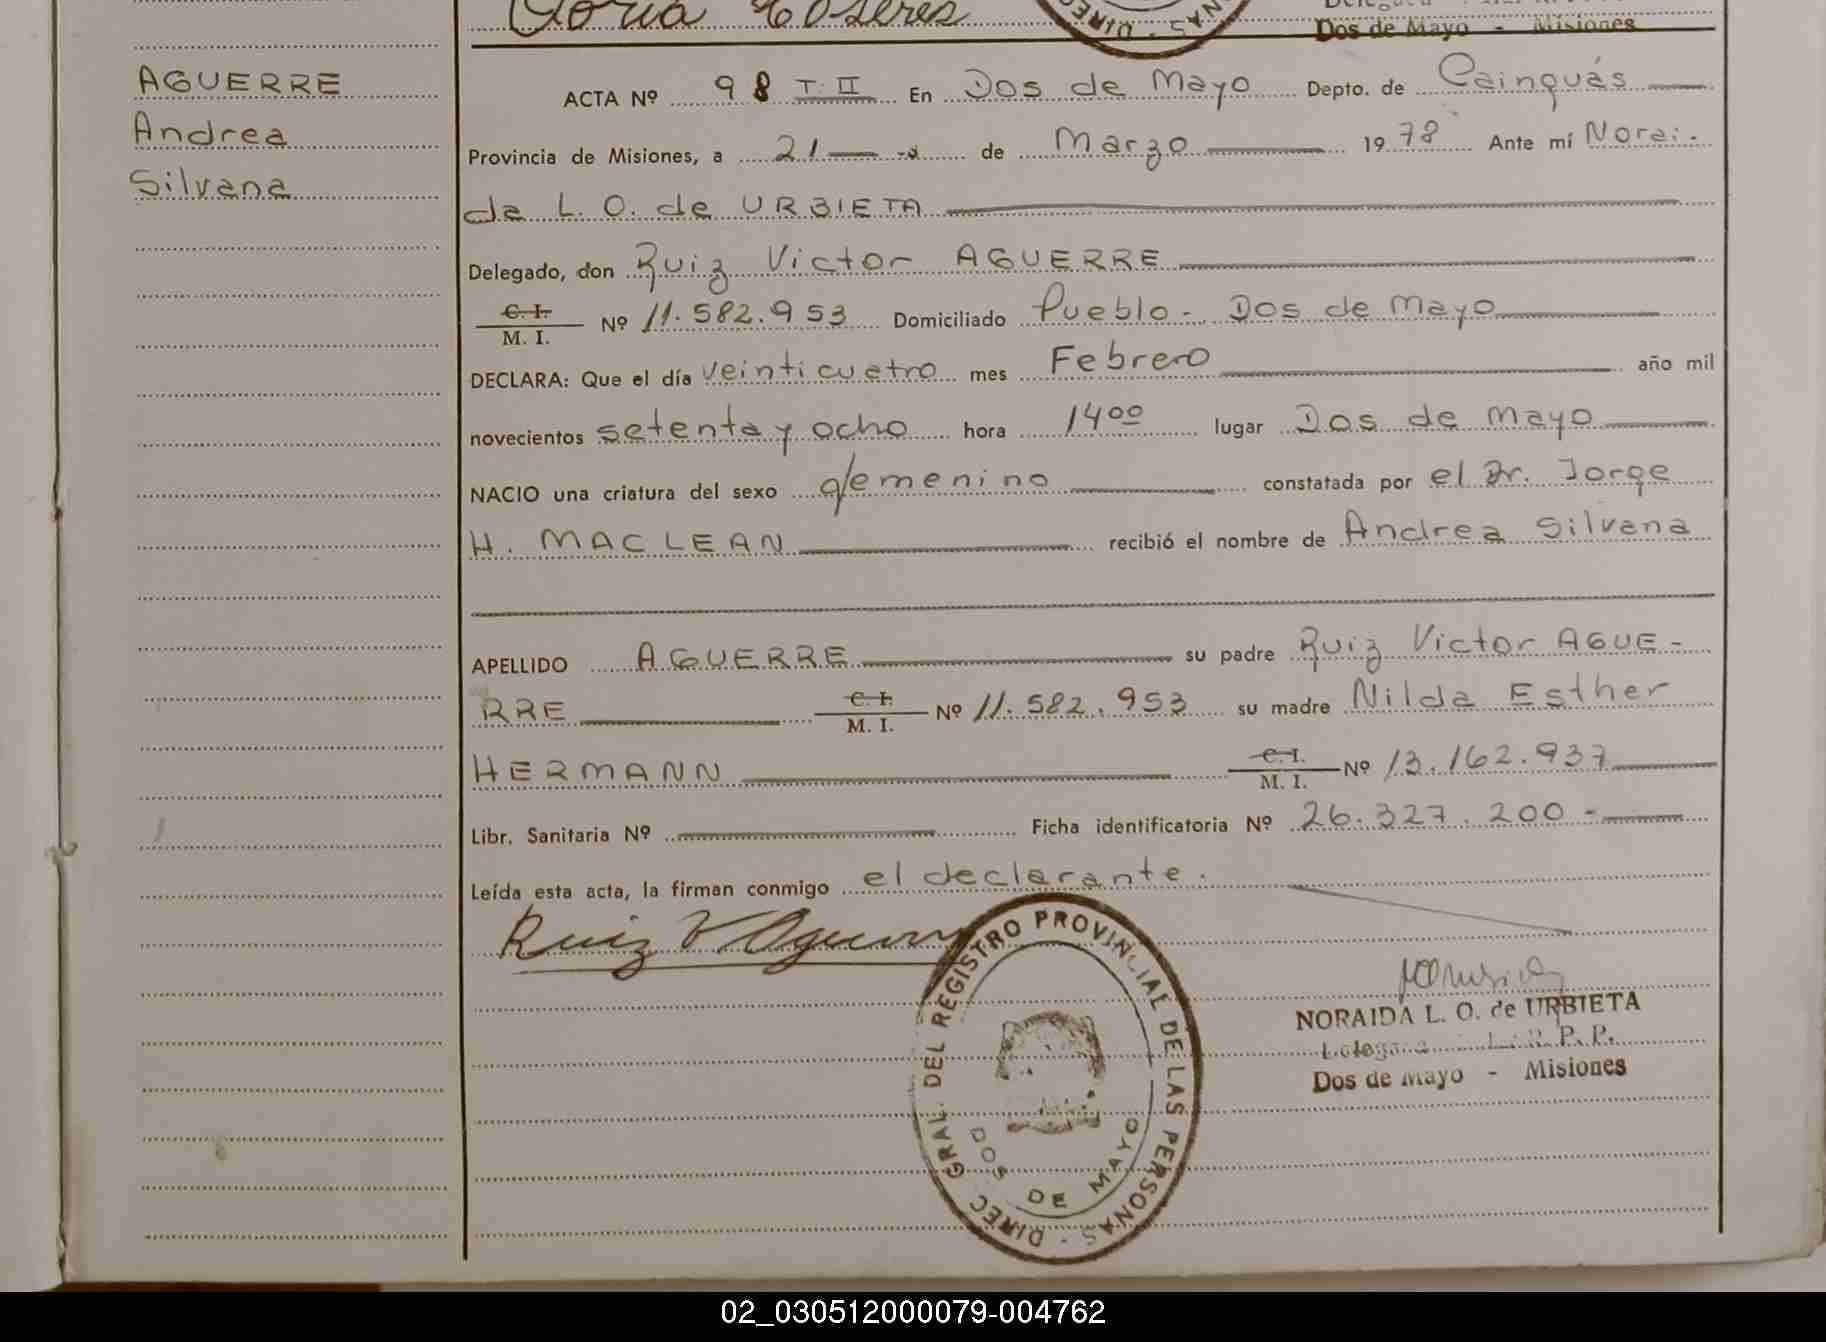 Dos de Mayo - Misiones
AGUERRE
Andrea
Silvana
ACTA Nº 98 T. II En Dos de Mayo Depto. de Cainguás
Provincia de Misiones, a 21 de Marzo 1978 Ante mí Norai-
da L. O. de URBIETA
Delegado, don Ruiz Victor AGUERRE
C. I.
M. I. Nº 11.582.953 Domiciliado Pueblo - Dos de Mayo
DECLARA: Que el día veinticuatro mes Febrero año mil
novecientos setenta y ocho hora 14⁰⁰ lugar Dos de Mayo
NACIO una criatura del sexo femenino constatada por el Dr. Jorge
H. MACLEAN recibió el nombre de Andrea Silvana
APELLIDO AGUERRE su padre Ruiz Victor AGUE-
RRE C. I. M. I. Nº 11.582.953 su madre Nilda Esther
HERMANN C. I. M. I. Nº 13.162.937
Libr. Sanitaria Nº Ficha identificatoria Nº 26.327.200-
Leída esta acta, la firman conmigo el declarante.
Ruiz V Aguerre
DIREC. GRAL. DEL REGISTRO PROVINCIAL DE LAS PERSONAS -
DOS DE MAYO
NORAIDA L. O. de URBIETA
R. P. P.
Dos de Mayo - Misiones
02_030512000079-004762